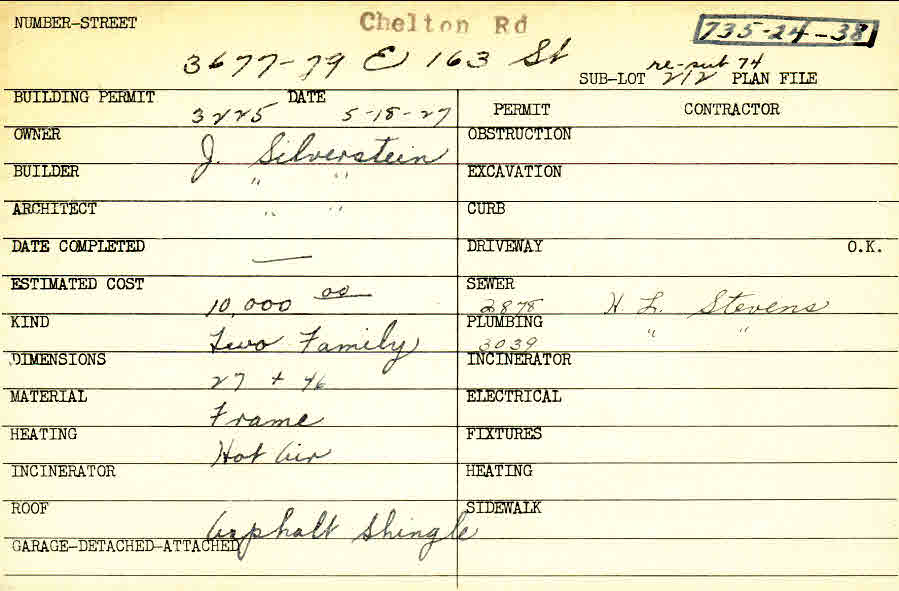 NUMBER-STREET Chelton Rd 735-24-38
3677-79 E 163 St
re-sub 74
SUB-LOT 212 PLAN FILE
BUILDING PERMIT 3225 DATE 5-18-27
PERMIT CONTRACTOR
OWNER J. Silverstein
OBSTRUCTION
BUILDER " "
EXCAVATION
ARCHITECT " "
CURB
DATE COMPLETED —
DRIVEWAY O.K.
ESTIMATED COST 10,000 00
SEWER 2878 H. L. Stevens
KIND Two Family
PLUMBING 3039 " "
DIMENSIONS 27 + 46
INCINERATOR
MATERIAL Frame
ELECTRICAL
HEATING Hot Air
FIXTURES
INCINERATOR
HEATING
ROOF Asphalt Shingle
SIDEWALK
GARAGE-DETACHED-ATTACHED